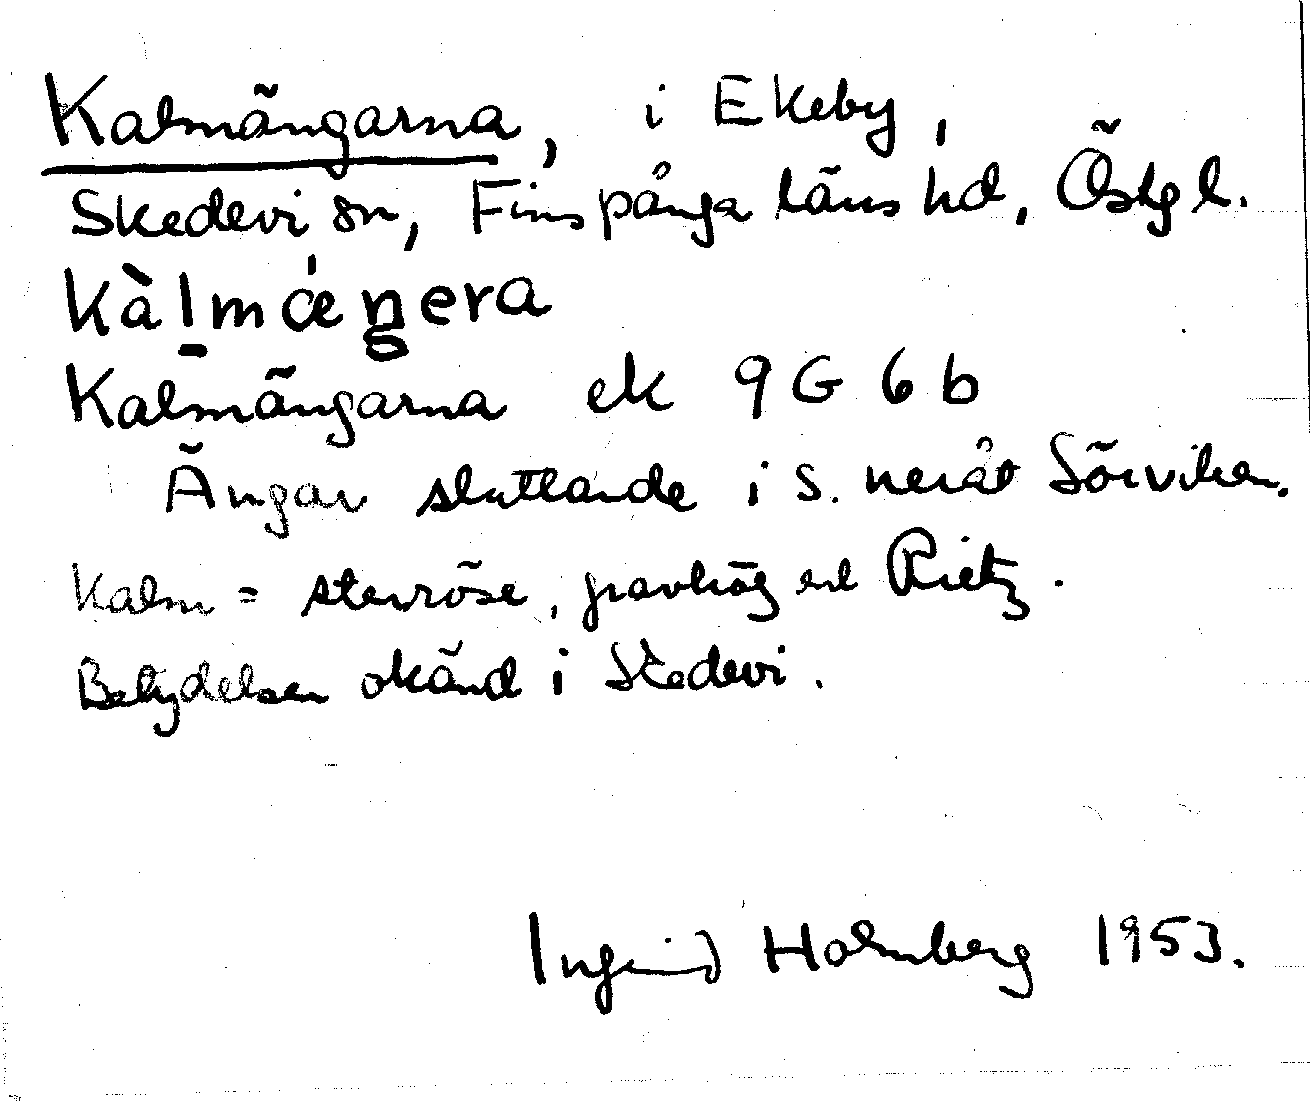 Kalmängarna, i Ekeby,
Skedevi sn, Finspånga läns hd, Östgl.
Kàlmǽŋera
Kalmängarna ek 9G 6b
Ängar sluttande i S. neråt Sörviken.
Kalm = stenröse, gravhög enl Rietz.
Betydelsen okänd i Skedevi.
Ingrid Holmberg 1953.